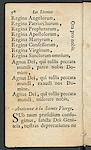 Las Letanias
Regina Angelorum,
Regina Patriarcharum,
Regina Prophetarum,
Regina Apostolorum,
Regina Martyrum,
Regina Confessorum,
Regina Virginum,
Regina Sanctorum omnium,
Ora pro nobis.
Agnus Dei, qui tollis peccata
mundi, parce nobis Do-
mine.
Agnus Dei, qui tollis peccata
mundi, exaudi nos Do-
mine.
Agnus Dei, qui tollis peccata
mundi, miserere nobis.
Sub tuum præsidium confu-
gimus, Sancta Dei Geni-
trix, nostras deprecationes ne